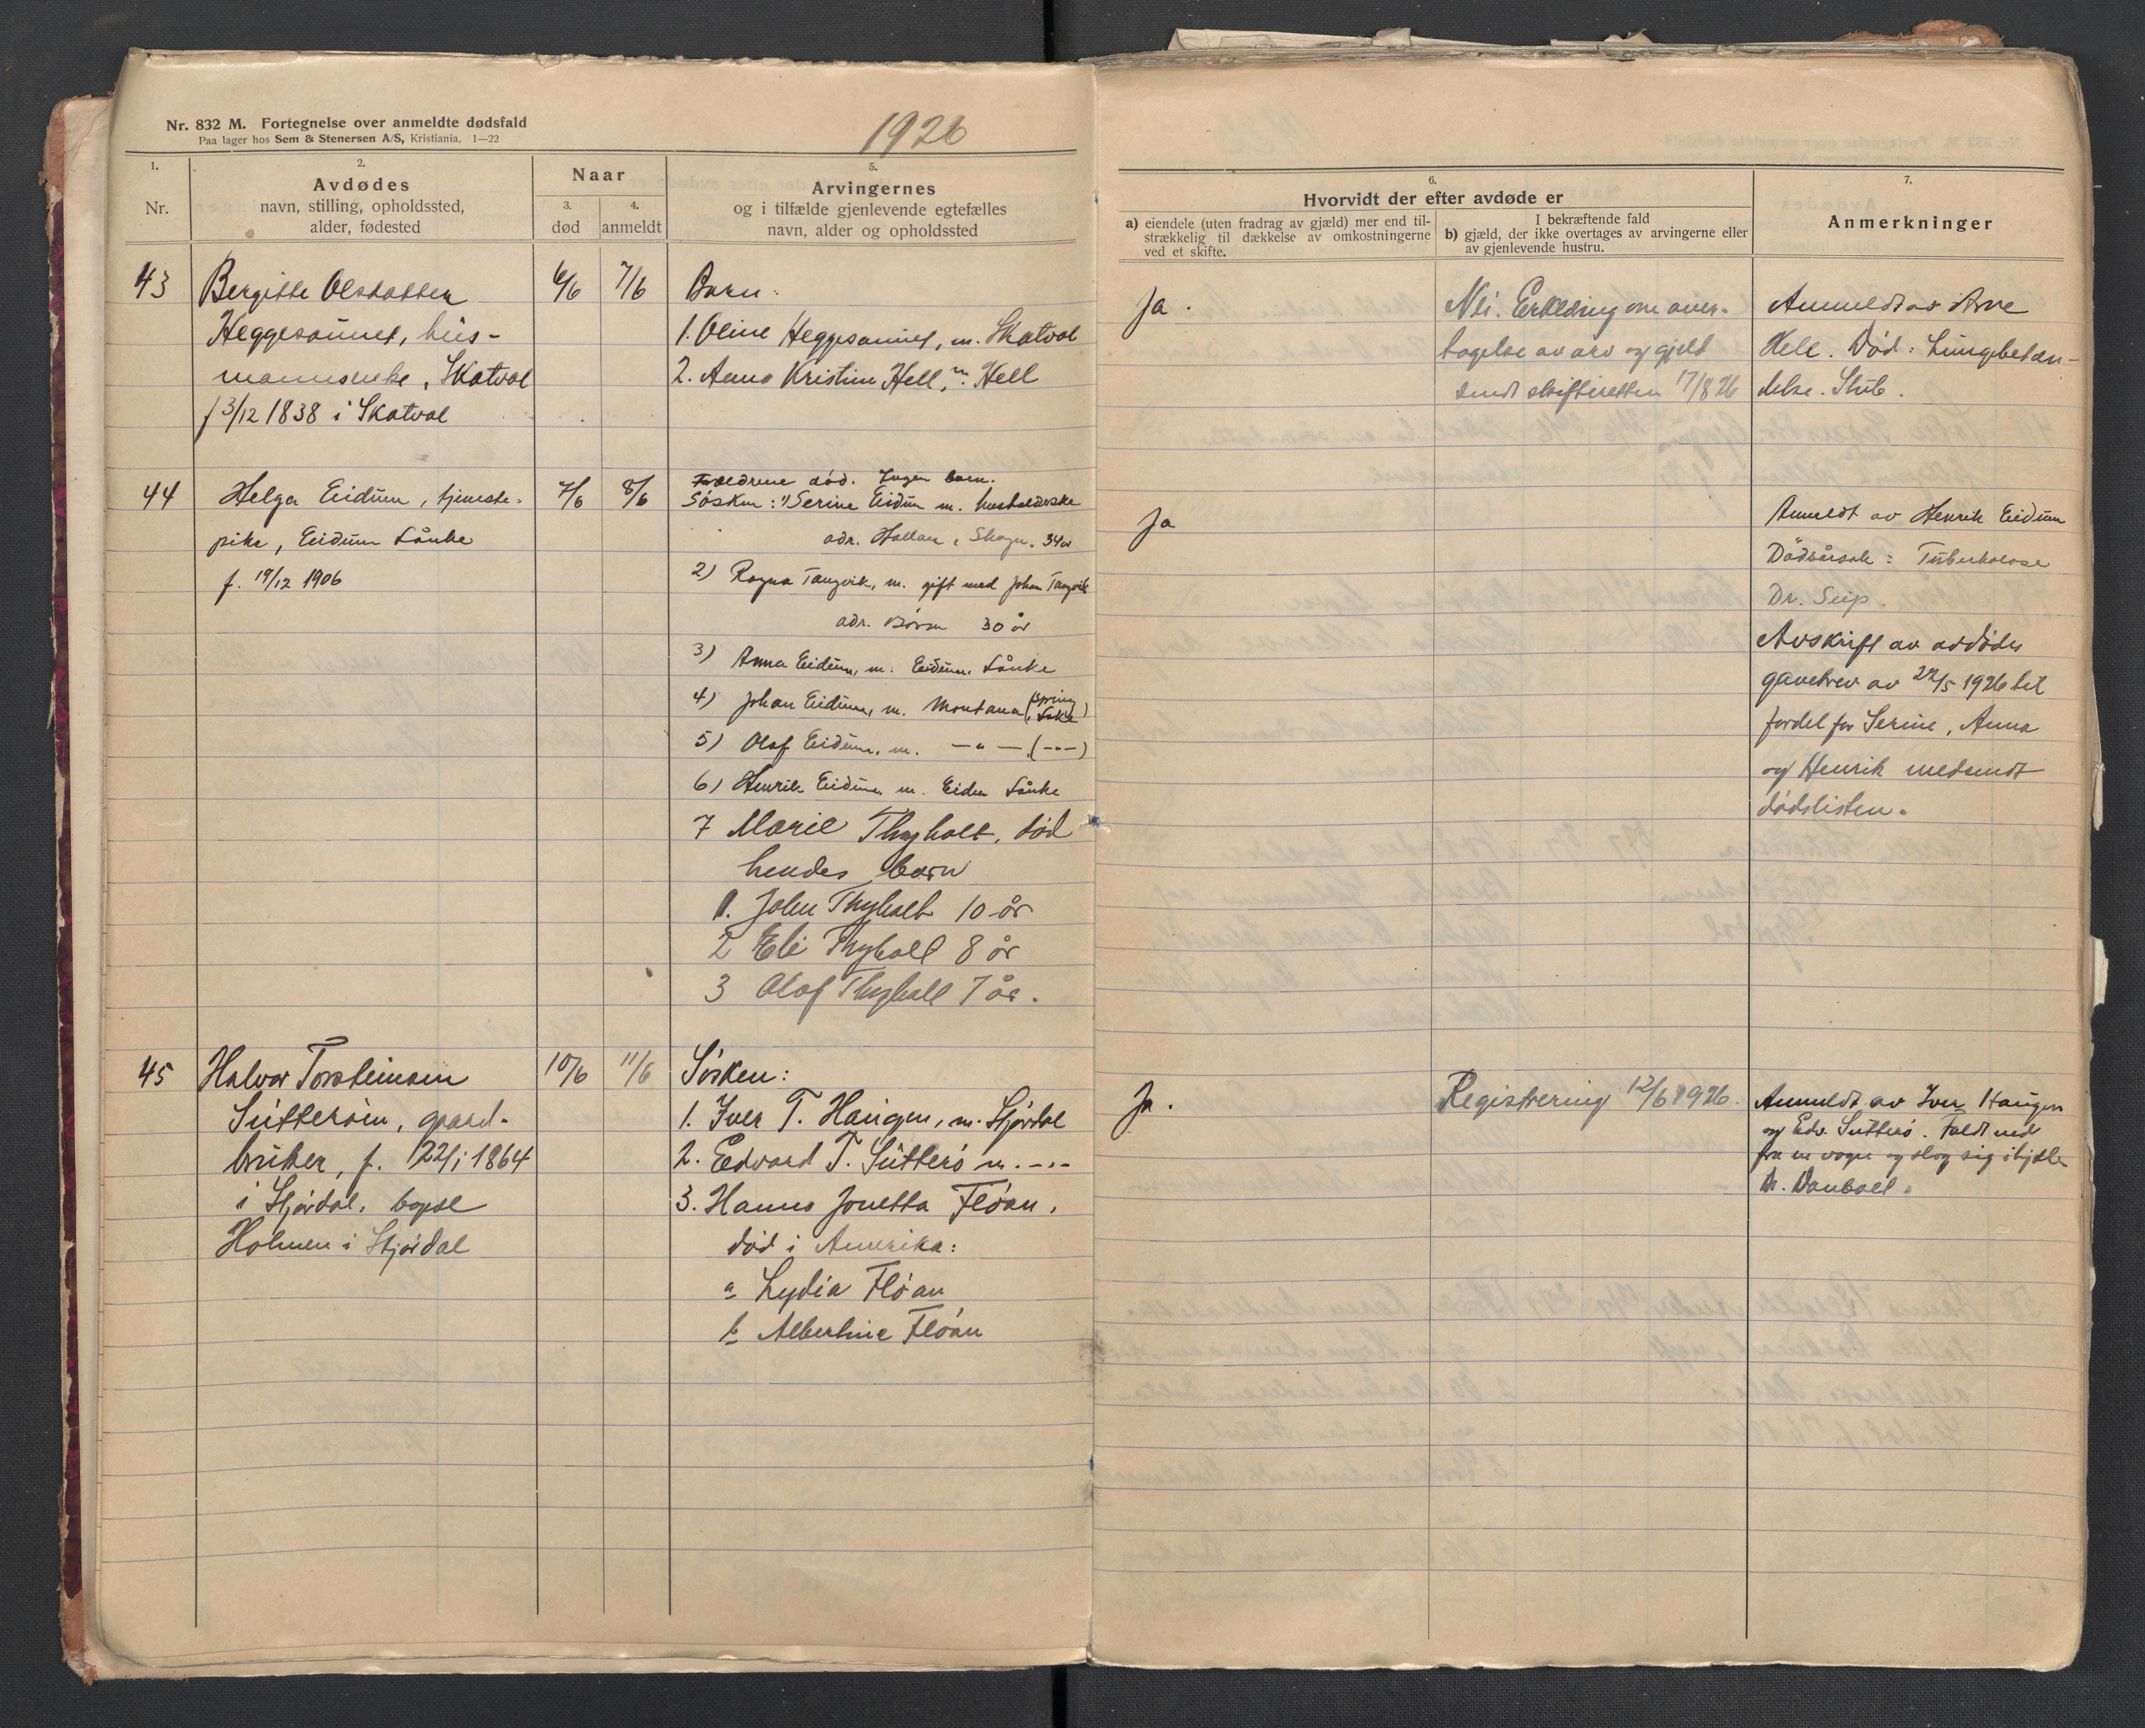 Nr. 832 M. Fortegnelse over anmeldte dødsfald
Paa lager hos Sem & Stenersen A/S, Kristiania. 1—22
1926
1.
Nr.
2.
Avdødes
navn, stilling, opholdssted,
alder, fødested
Naar
3.
død
4.
anmeldt
5.
Arvingernes
og i tilfælde gjenlevende egtefælles
navn, alder og opholdssted
6.
Hvorvidt der efter avdøde er
a) eiendele (uten fradrag av gjæld) mer end til-
strækkelig til dækkelse av omkostningerne
ved et skifte.
I bekræftende fald
b) gjæld, der ikke overtages av arvingerne eller
av gjenlevende hustru.
7.
Anmerkninger
43
Bergitte Olsdatter
Heggesaunet, hus-
mannsenke, Skatval
f 3/12 1838 i Skatval
6/6
7/6
Barn:
1. Oline Heggesaunet, m. Skatval
2. Anna Kristine Hell, m. Hell
Ja.
Nei. Erklæring om over-
tagelse av arv og gjeld
sendt skifteretten 17/8 26
Anmeldt av Arve
Hell. Død: Lungebetæn-
delse. Stub.
44
Helga Eidum, tjeneste-
pike, Eidum Lånke
f. 19/12 1906
7/6
8/6
Foreldrene død. Ingen barn.
Søsken: 1) Serine Eidum m. husholderske
adr. Hollan, Skogn. 34 år
2) Ragna Tangvik, m. gift med Johan Tangvik
adr. Børsa 30 år
3) Anna Eidum, m. Eidum, Lånke
4) Johan Eidum, m. Montana (Spring Lake)
5) Olaf Eidum, m. —"— (—"—)
6) Henrik Eidum m. Eidum Lånke
7 Marie Thyholt, død
hendes barn
1. John Thyholt 10 år
2 Eli Thyholt 8 år
3 Olaf Thyholt 7 år.
Ja
Anmeldt av Henrik Eidum
Dødsårsak: Tuberkolose
Dr. Seip.
Avskrift av avdødes
gavebrev av 22/5 1926 til
fordel for Serine, Anna
og Henrik medsendt
dødslisten.
45
Halvor Torsteinsen
Sutterøen, gaard-
bruker, f. 22/1 1864
i Stjørdal, bopel
Holmen i Stjørdal
10/6
11/6
Søsken:
1. Iver T. Haugen, m. Stjørdal
2. Edvard T. Sutterø m. -"-
3. Hanna Jonetta Fløan,
død i Amerika:
a Lydia Fløan
b Albertine Fløan
Ja.
Registrering 12/6 1926.
Anmeldt av Iver Haugen
og Edv. Sutterø. Faldt ned
fra en vogn og slog sig ihjel
Dr. Danbolt.